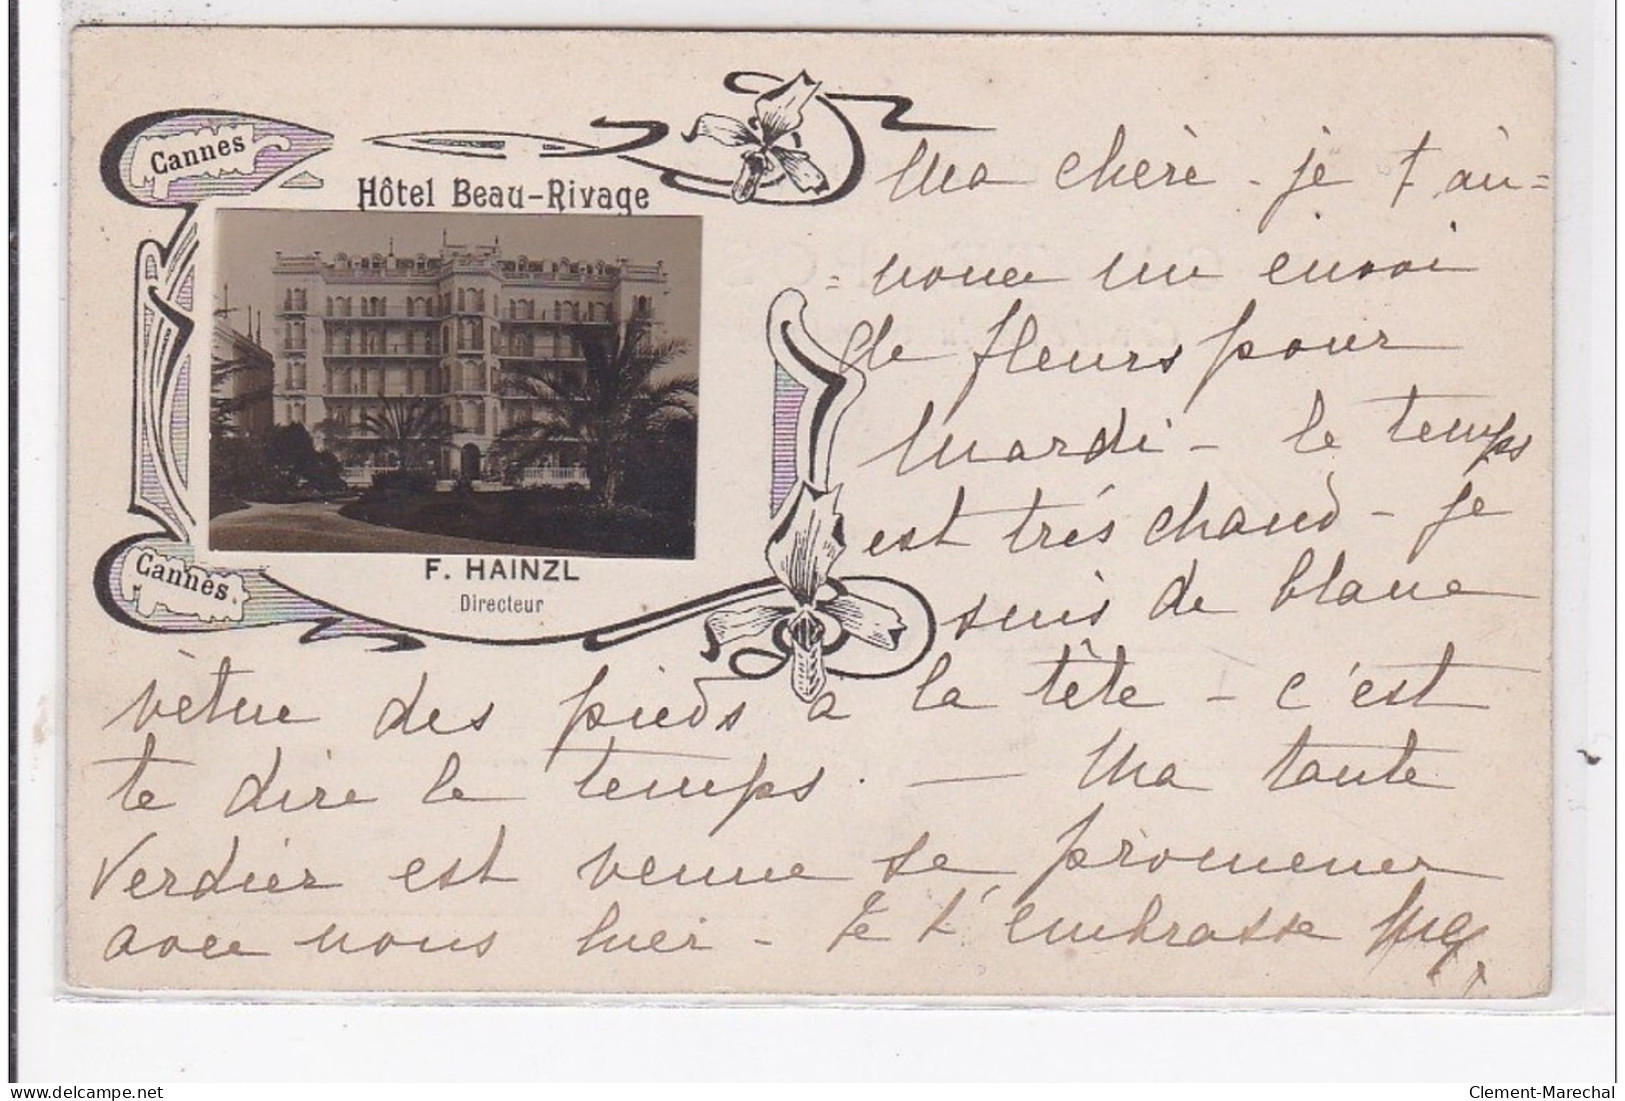 Cannes
Hôtel Beau-Rivage
F. HAINZL
Directeur
Cannes
Ma chère - je t'an=
=nonce un envoi
de fleurs pour
mardi - le temps
est très chaud - je
suis de blanc
vètue des pieds a la tête - c'est
te dire le temps. — Ma tante
Verdier est venue se promener
avec nous hier - Je t'embrasse
delcampe.net
Clement-Marechal